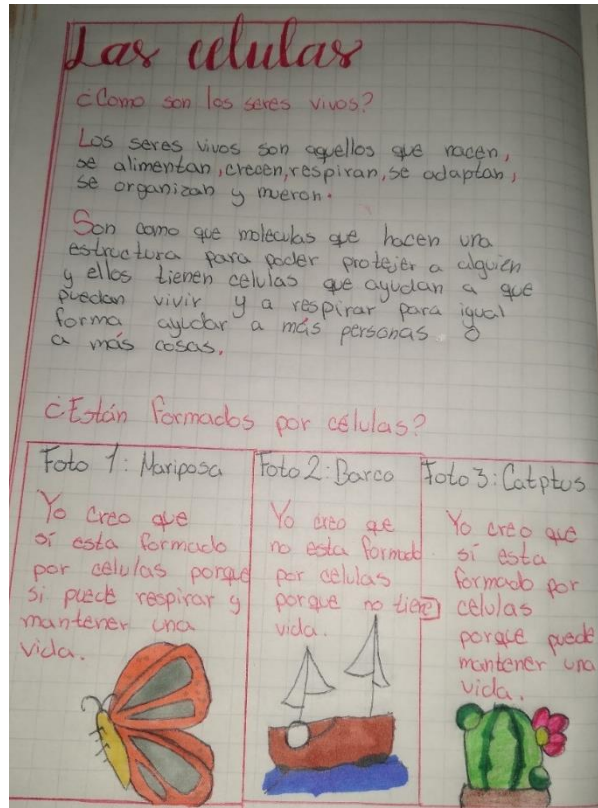 Las celulas
¿Como son los seres vivos?
Los seres vivos son aquellos que nacen,
se alimentan, crecen, respiran, se adaptan,
se organizan y mueron.
Son como que moleculas que hacen una
estructura para poder protejer a alguien
y ellos tienen celulas que ayudan a que
puedan vivir y a respirar para igual
forma ayudar a más personas o
a más cosas.
¿Están formados por células?
Foto 1: Mariposa
Yo creo que
si esta formado
por celulas porque
si puede respirar y
mantener una
vida.
Foto 2: Barco
Yo creo que
no esta formado
por celulas
porque no tiene
vida.
Foto 3: Catptus
Yo creo que
si esta
formado por
celulas
porque puede
mantener una
vida.